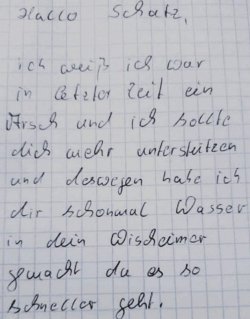 Hallo Schatz,
ich weiß ich war
in letzter Zeit ein
Arsch und ich sollte
dich mehr unterstützen
und deswegen habe ich
dir schonmal Wasser
in dein Wischeimer
gemacht da es so
schneller geht.